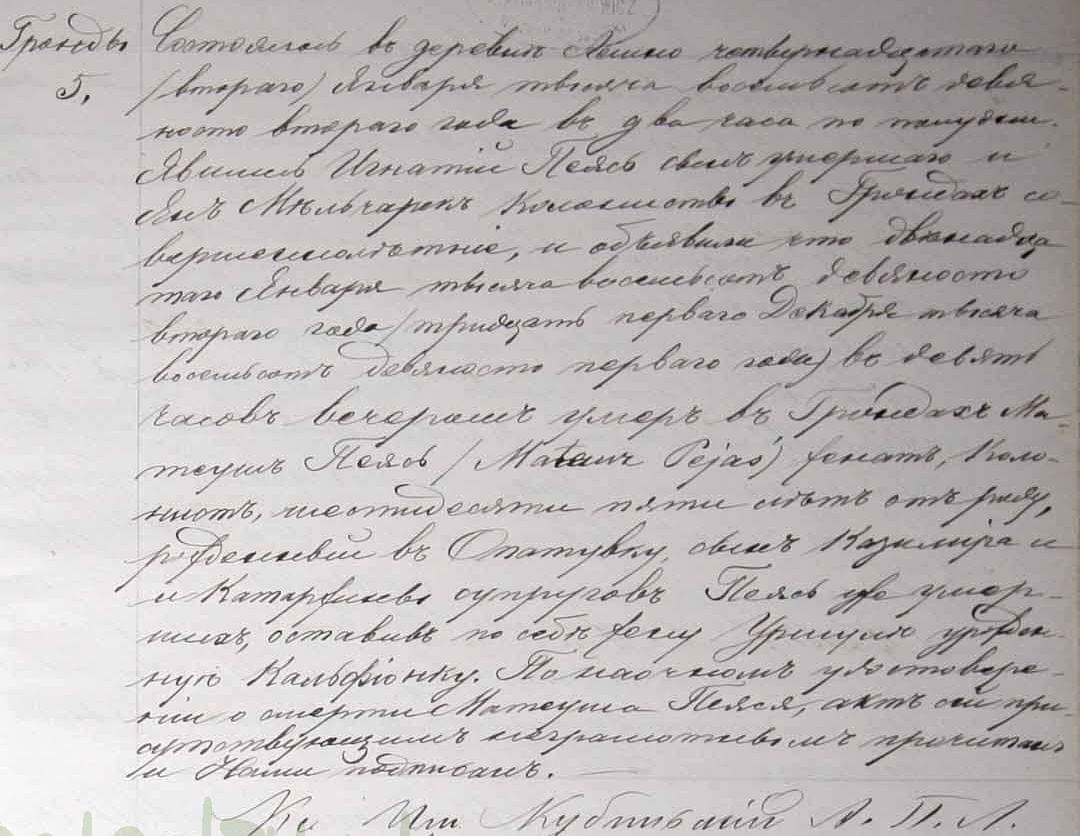 Гронды Состоялось въ деревнѣ четвернадцатаго
5. /втораго/ Января тысяча восемьсотъ девя-
носто втораго года въ два часа по полудни.
Явились Игнатій Пеясь сынъ умершаго и
Янъ Мѣльчарекъ колонисты въ Грондахъ со-
вершеннолѣтніе, и объявили что двѣнадца
таго Января тысяча восемьсотъ девяносто
втораго года /тридцать перваго Декабря тысяча
восемьсотъ девяносто перваго года/ въ девять
часовъ вечеромъ умеръ въ Грондахъ Ма-
теушъ Пеясь / Pejaś/ женатъ, Коло-
нистъ, шестидесяти пяти лѣтъ отъ роду,
рожденный въ Опатувку, сынъ Казиміра и
и Катаржины супруговъ Пеясь уже умер-
шихъ, оставивъ по себѣ жену Уршулю урожден-
ную Кальфіонку. По наочномъ удостовере-
ніи о смерти Матеуша Пеяся, актъ сей при-
сутствующимъ неграмотнымъ прочитанъ
и Нами подписанъ.
Кс А. П. Л.